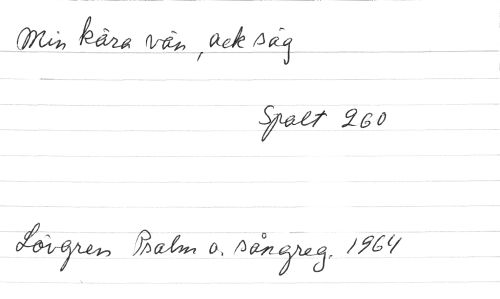 Min kära vän, ack säg
Spalt 260
Lövgren Psalm o. sångreg. 1964